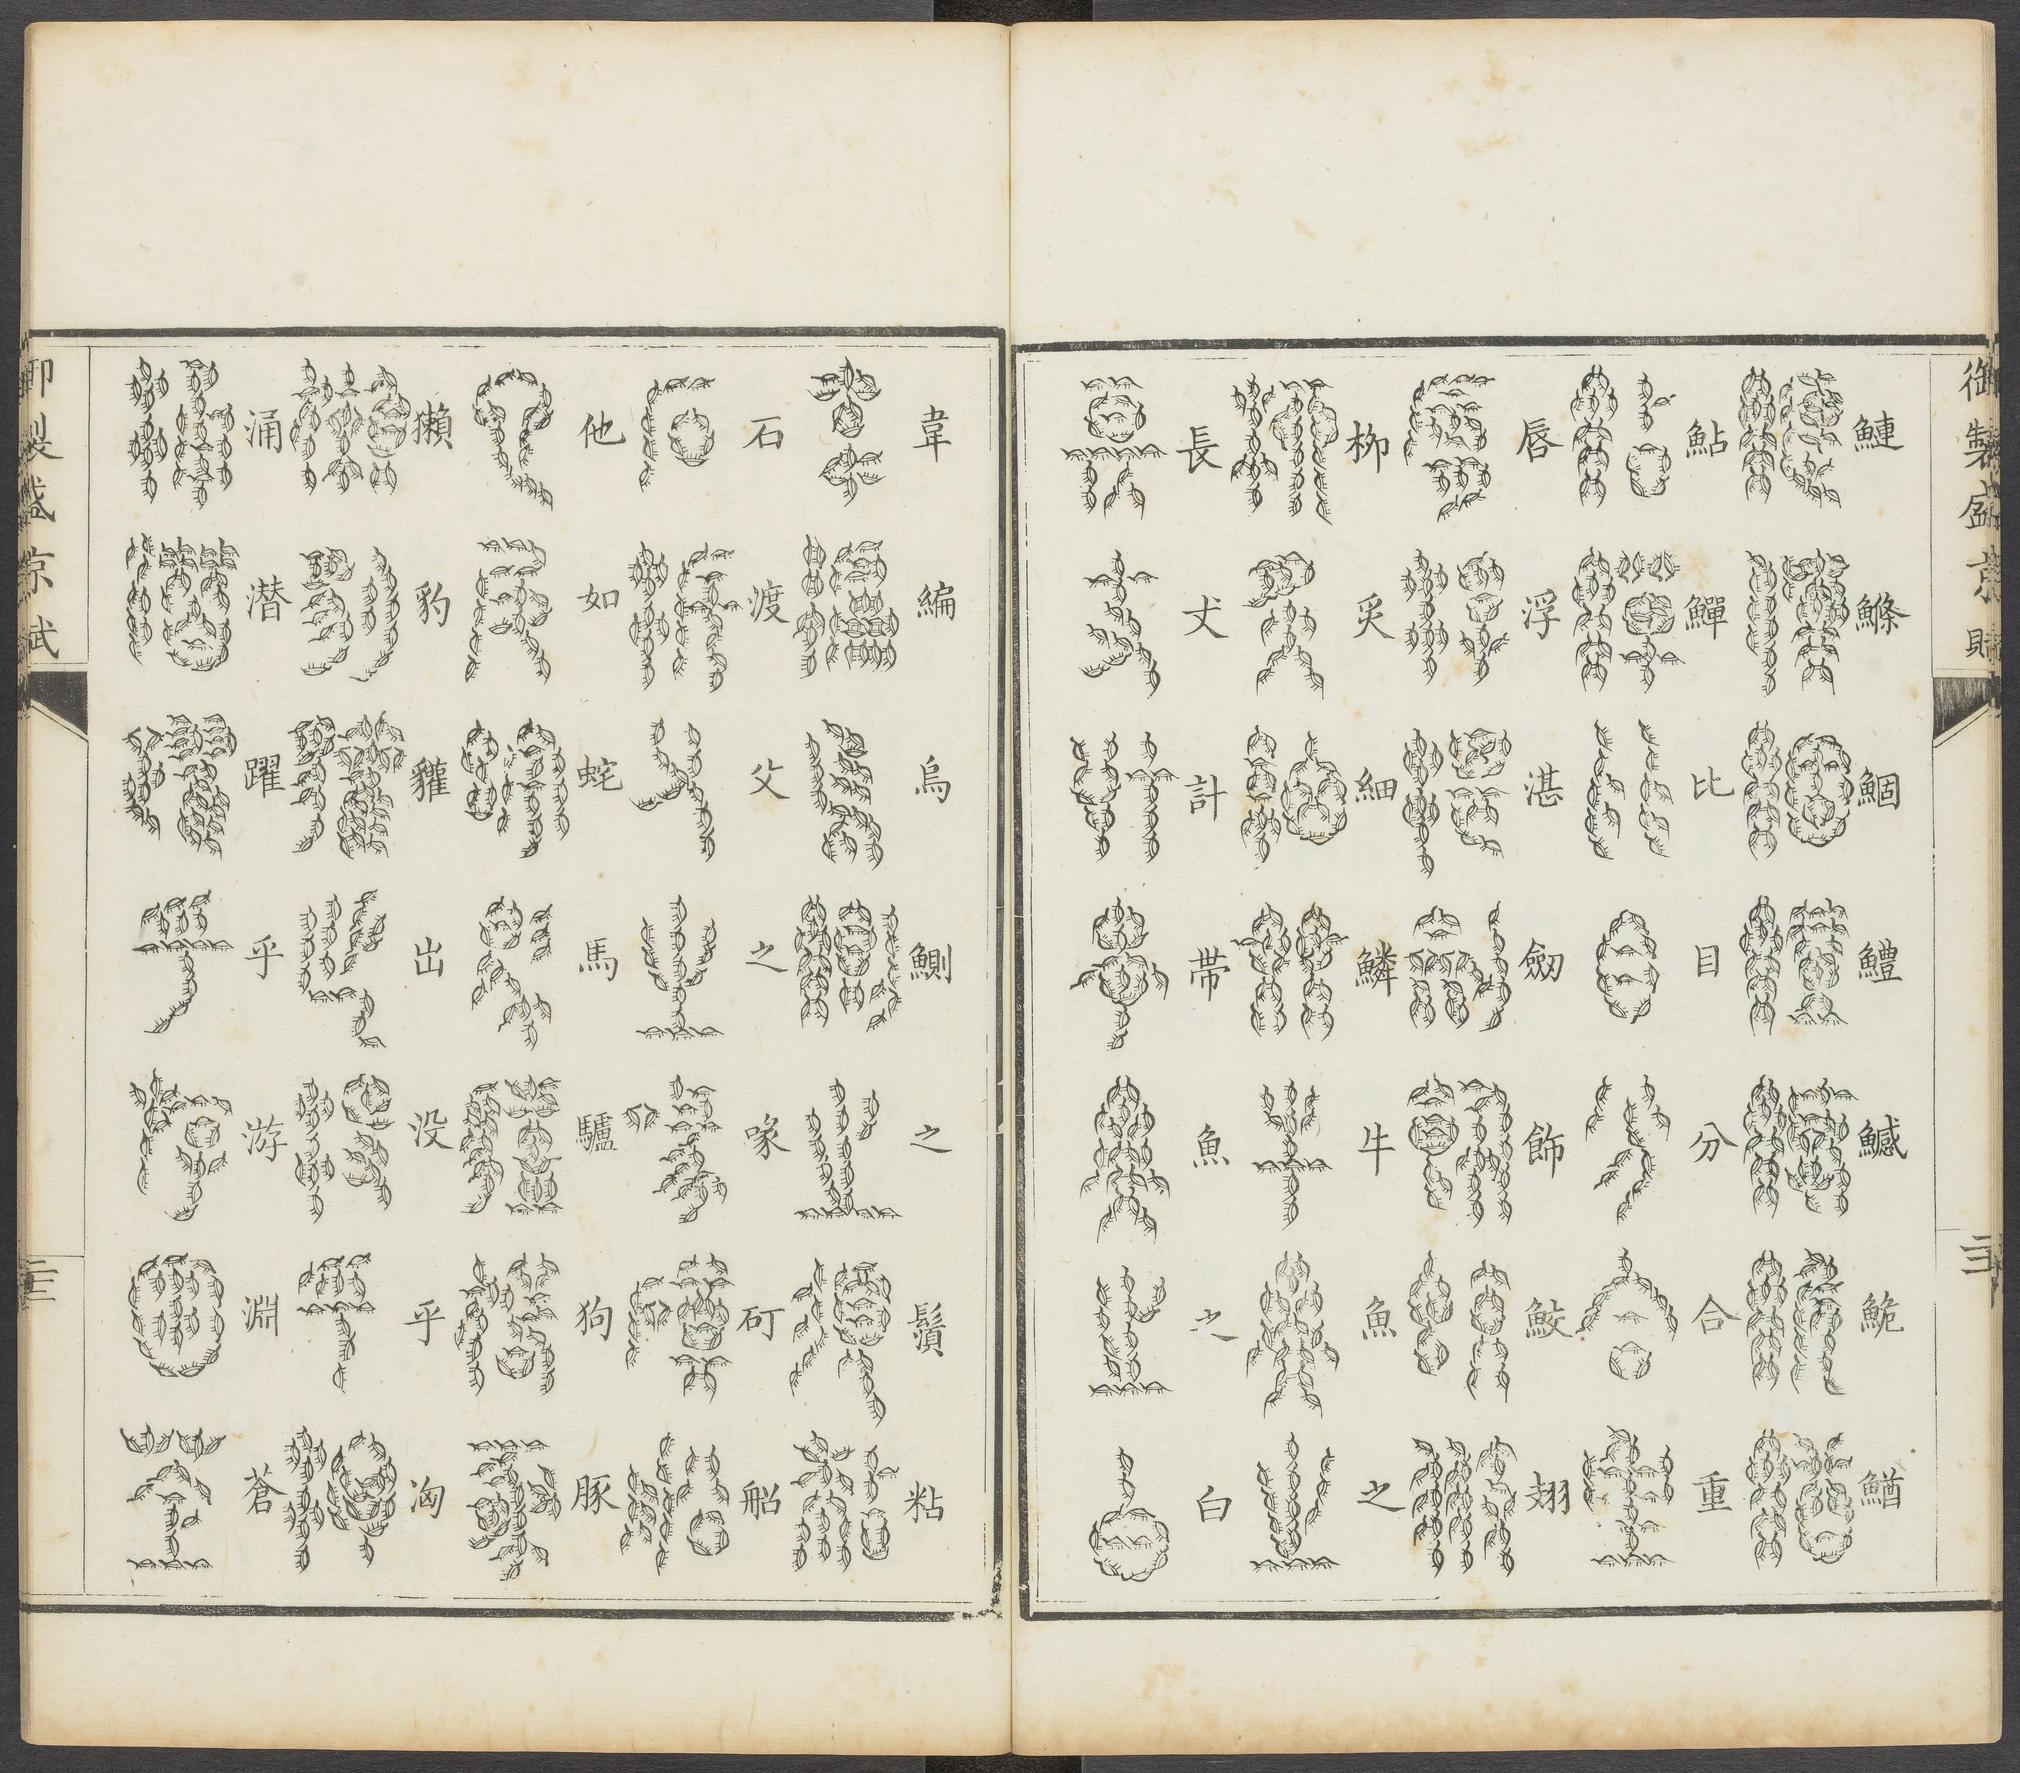 御製盛京賦
鰱鰷鯝鱧鱤鮠鰌
鮎鱓比目分合重
唇浮湛劒飾鮫翅
柳炙細鱗牛魚之
長丈計帶魚之白
韋編烏鰂之鬚粘
石渡父之喙矴船
他如蛇馬驢狗豚
獺豹貛出没乎洶
涌潛躍乎游淵蒼
御製盛京賦